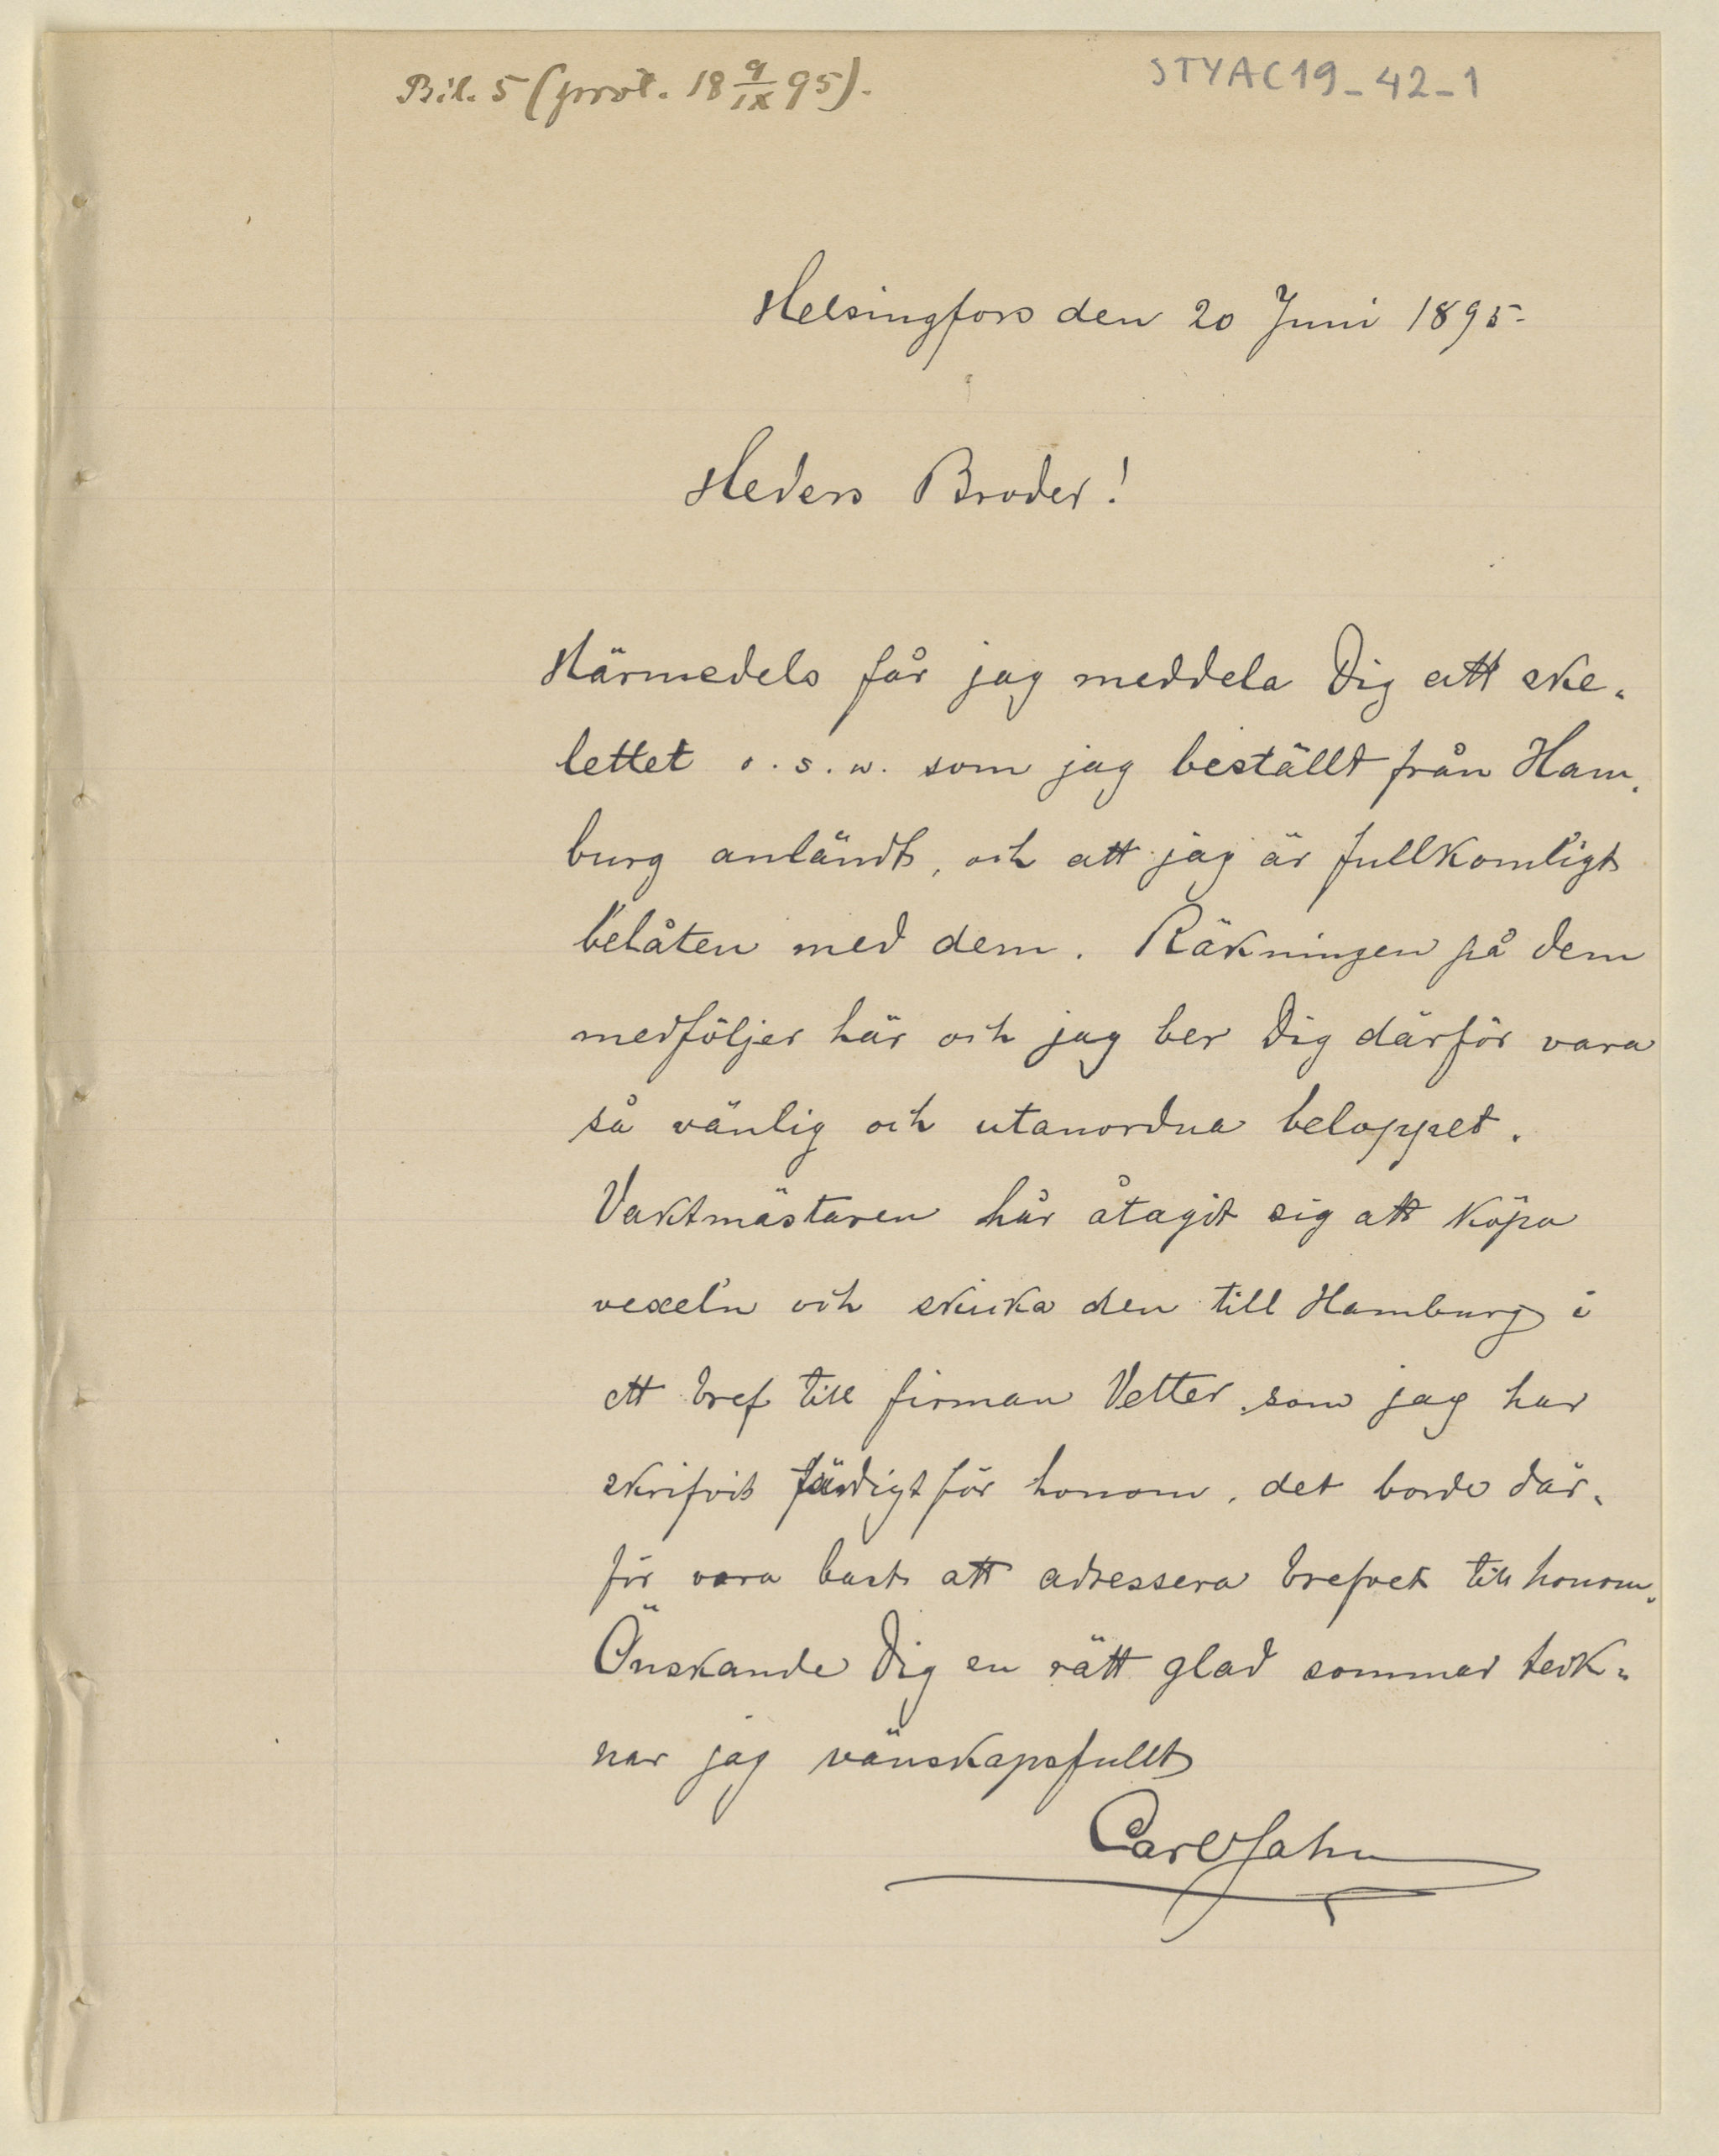 Bil. 5 (prot. 18 9/IX 95).
STYAC19_42_1
Helsingfors den 20 Juni 1895
Heders Broder!
Härmedels får jag meddela Dig att ske-
lettet o.s.w. som jag beställt från Ham-
burg anländt, och att jag är fullkomligt
belåten med dem. Räkningen på dem
medföljer här och jag ber Dig därför vara
så vänlig och utanordna beloppet.
Vaktmästaren här åtagit sig att köpa
vexeln och skicka den till Hamburg i
ett bref till firman Vetter, som jag har
skrifvit färdigt för honom, det borde där-
för vara bäst att adressera brefvet till honom.
Önskande Dig en rätt glad sommar teck-
nar jag vänskapsfullt
Carl Jahn